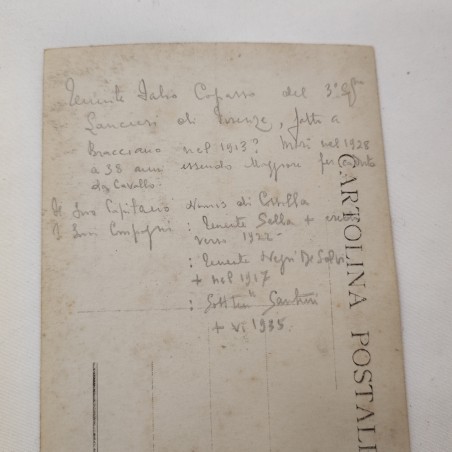 Tenente Italo Copasso del 3° Regg
Lancieri di Firenze, fatta a
Bracciano nel 1913? Morì nel 1928
a 38 anni essendo Maggiore per caduta
da Cavallo.
Il Suo Capitano Nomis di Cossilla
I Suoi Compagni : Tenente Sella +
verso 1922 -
: Tenente Negri De Salvi
+ nel 1917
: Sotten
+ 1935.
CARTOLINA POSTALE